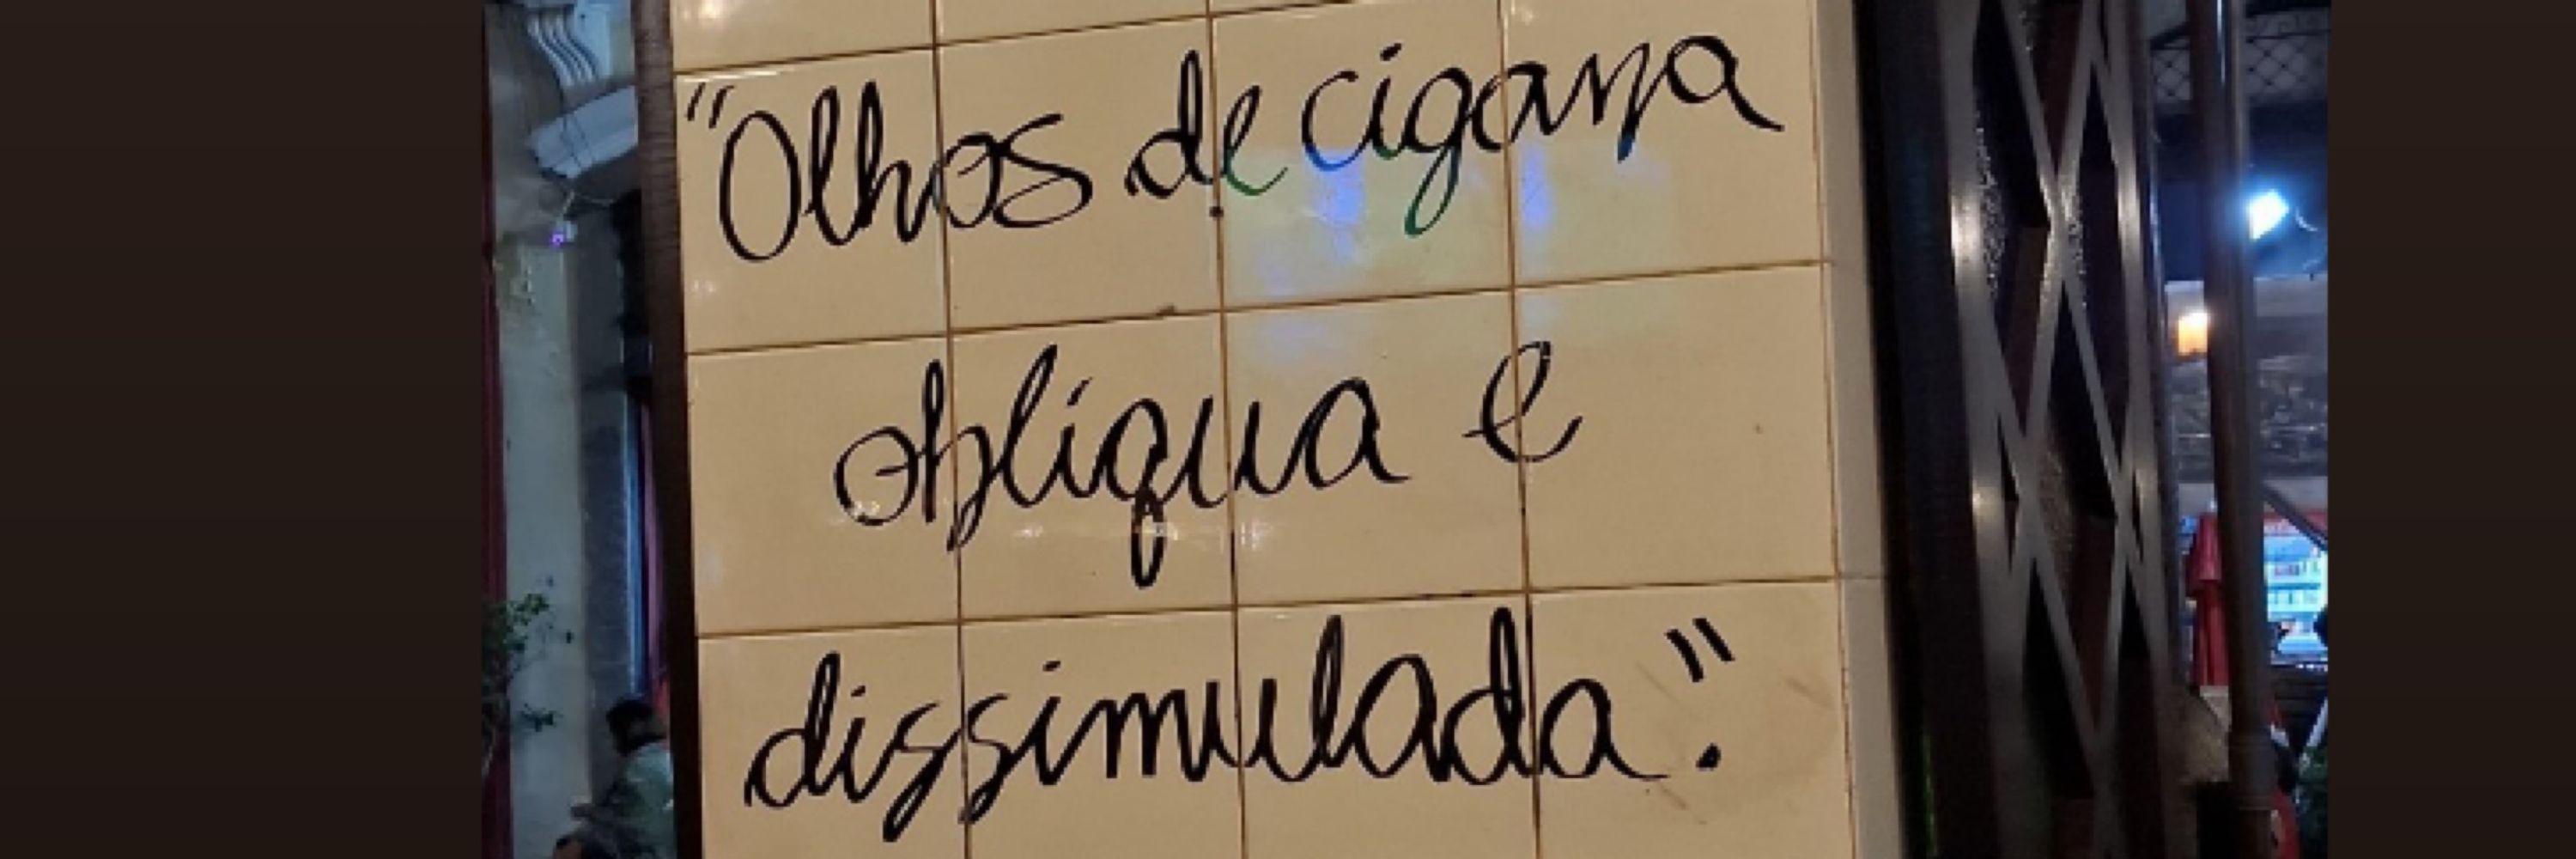 "Olhos de cigana
oblíqua e
dissimulada."